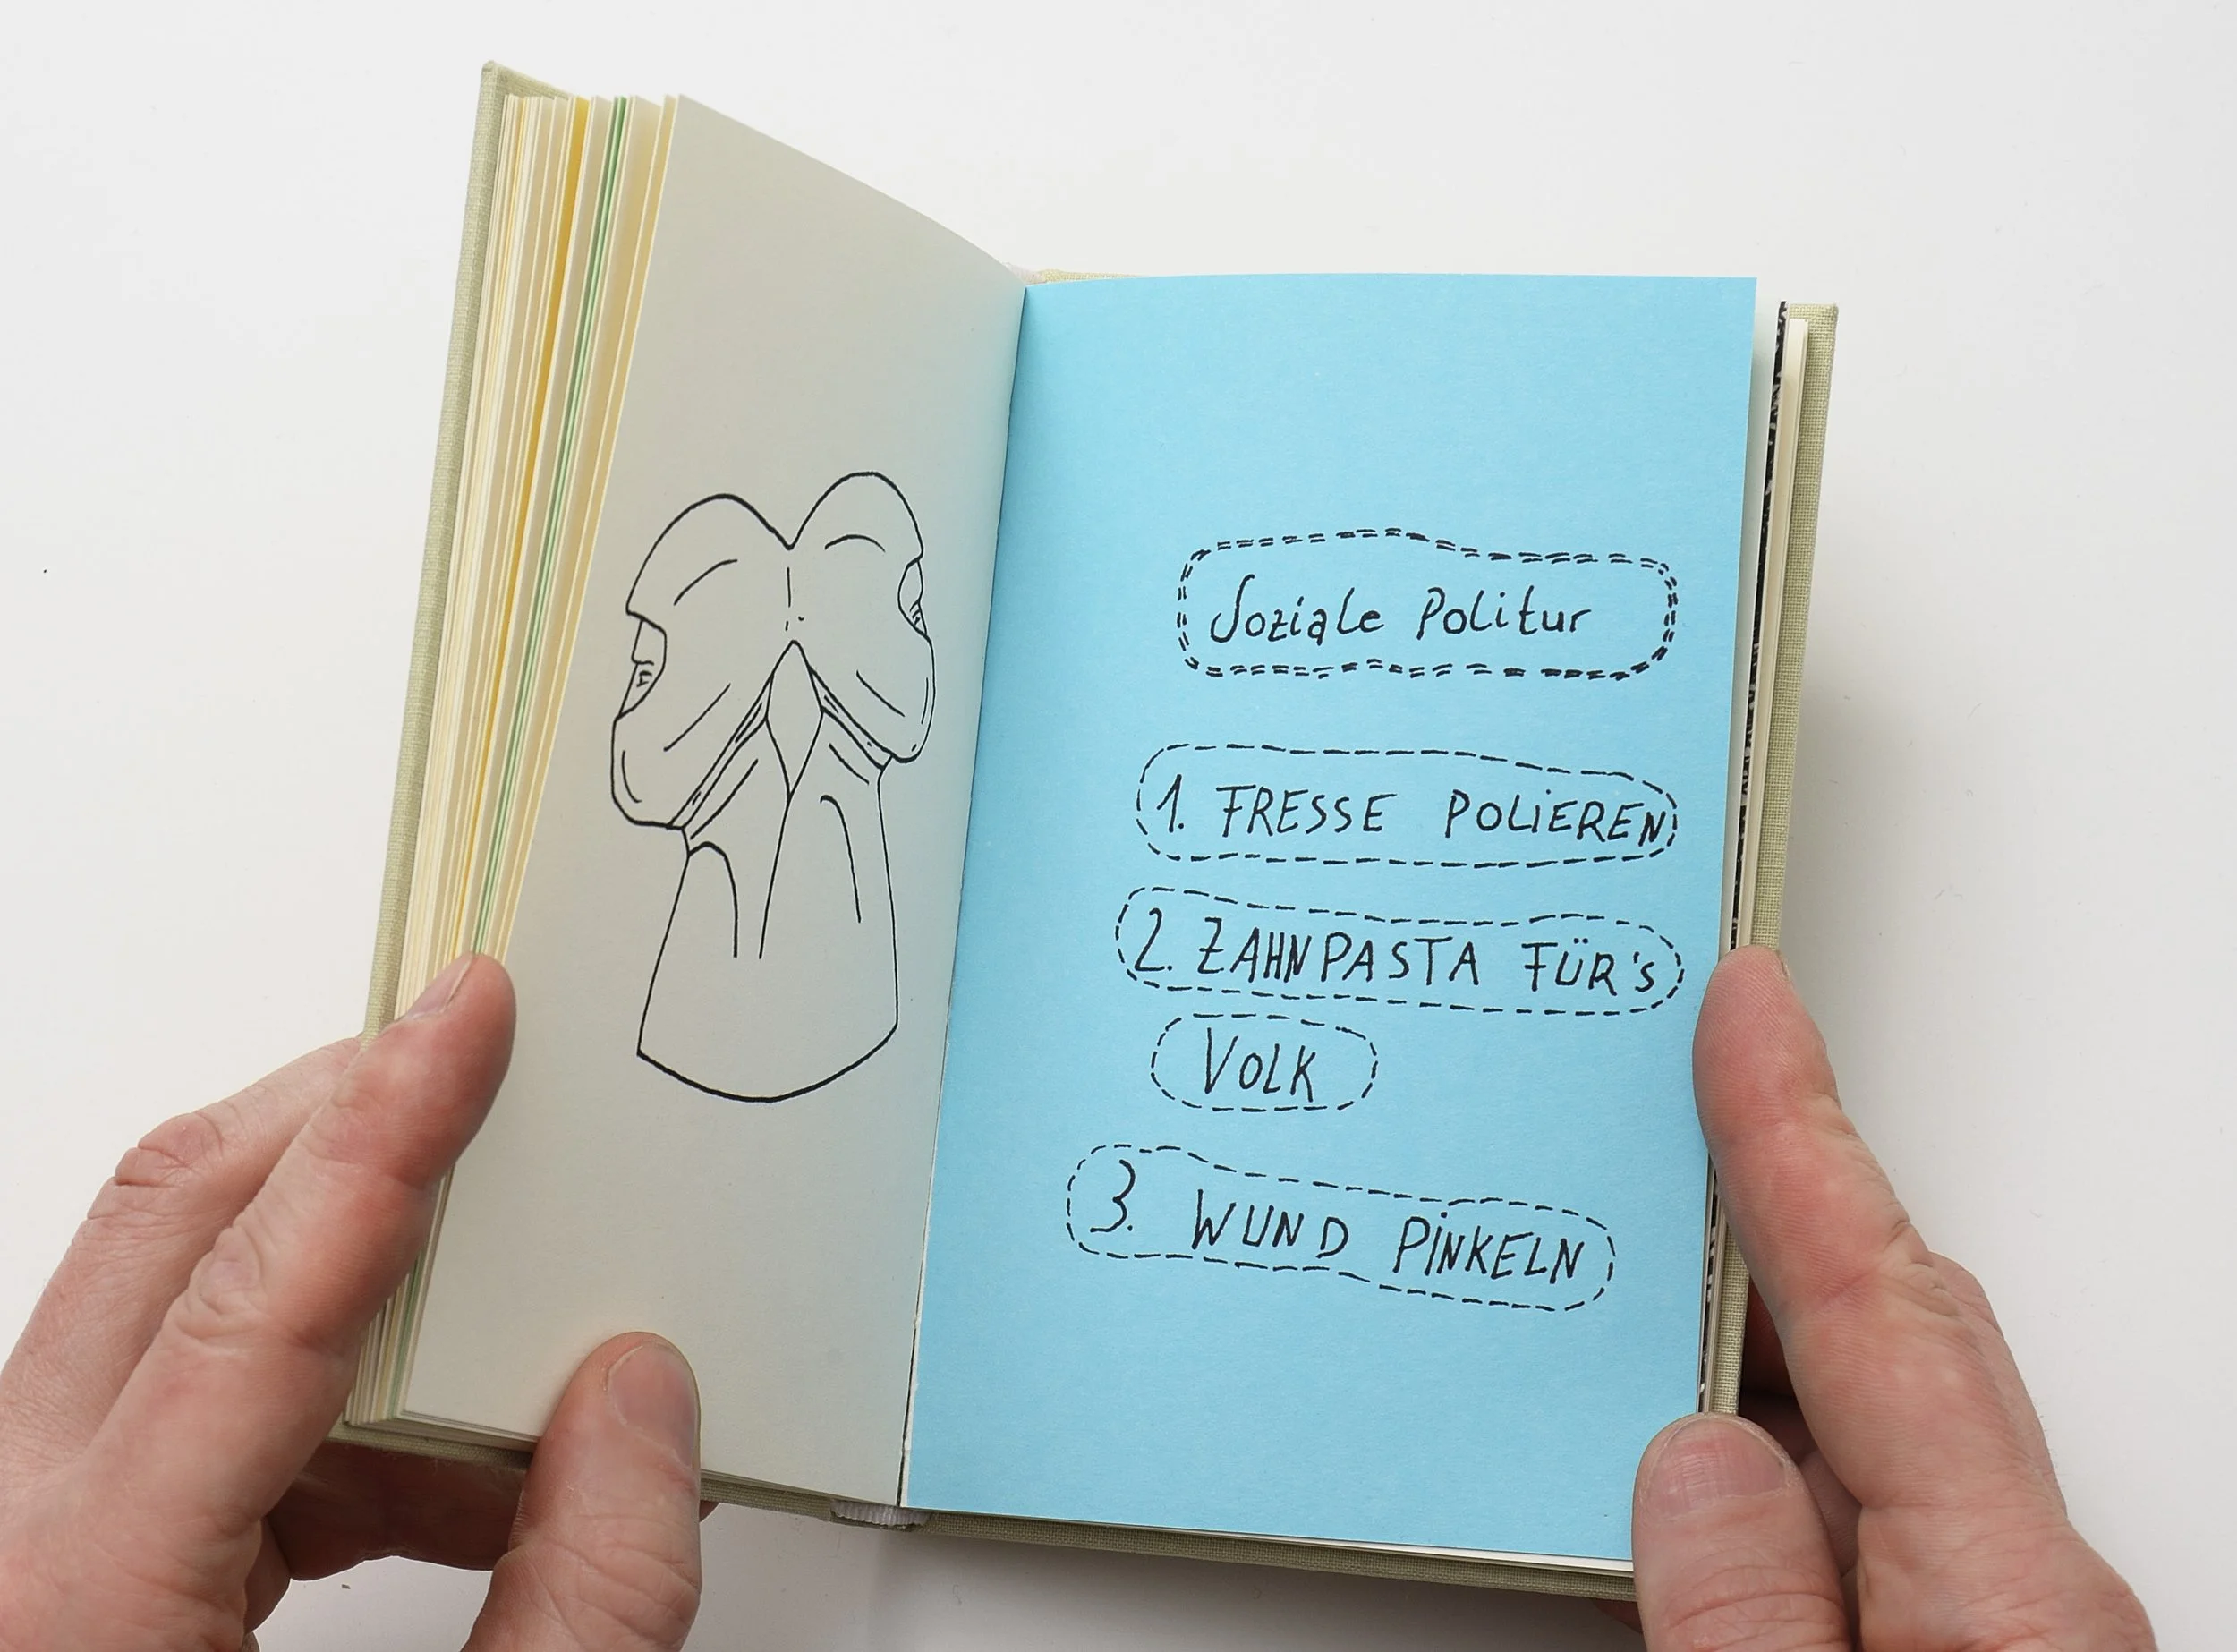 Soziale Politur
1. FRESSE POLiEREN
2. ZAHNPASTA FÜR's
VOLK
3. WUND PiNKELN